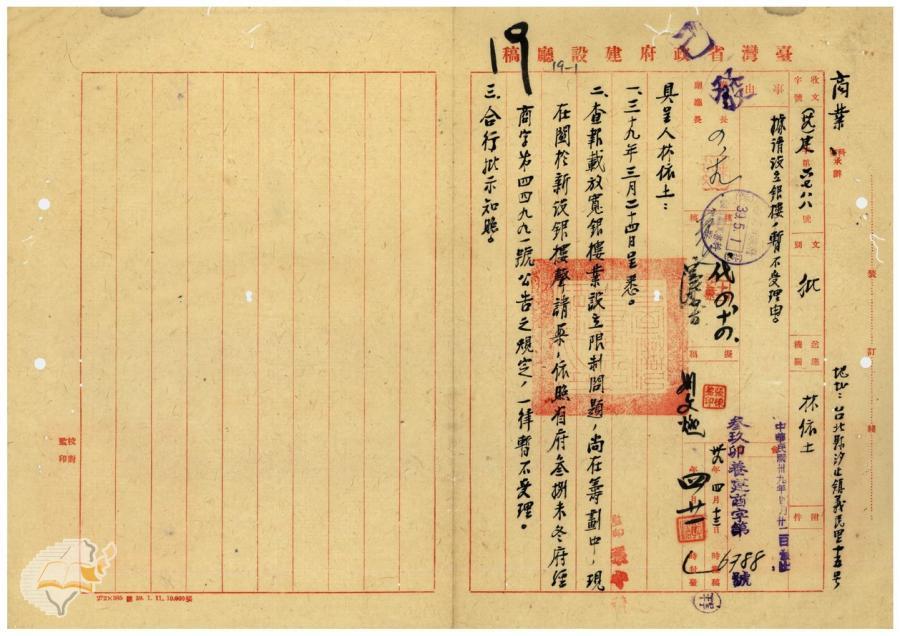 臺灣省政府建設廳稿
19
19-1
發
商業 科承辦
收文字號
號
六七八八
文別
批
送達機關
林依土
附件
地址：台北縣汐止鎮義民里十五号
事由
據請設立銀樓，暫不受理由。
廳長
擬稿
代 四、十四、
中華民國卅九年
叁玖卯
建商字第6788號
四 廿一
具呈人林依土：
一、三十九年三月二十四日呈悉。
二、查報載放寬銀樓業設立限制問題，尚在籌劃中，現
在關於新設銀樓聲請案，依照省府叁捌未冬府經
商字第四四九九一號公告之規定，一律暫不受理。
三、合行批示知照。
裝
訂
線
校對
監印
39. 1. 11. 10.000張